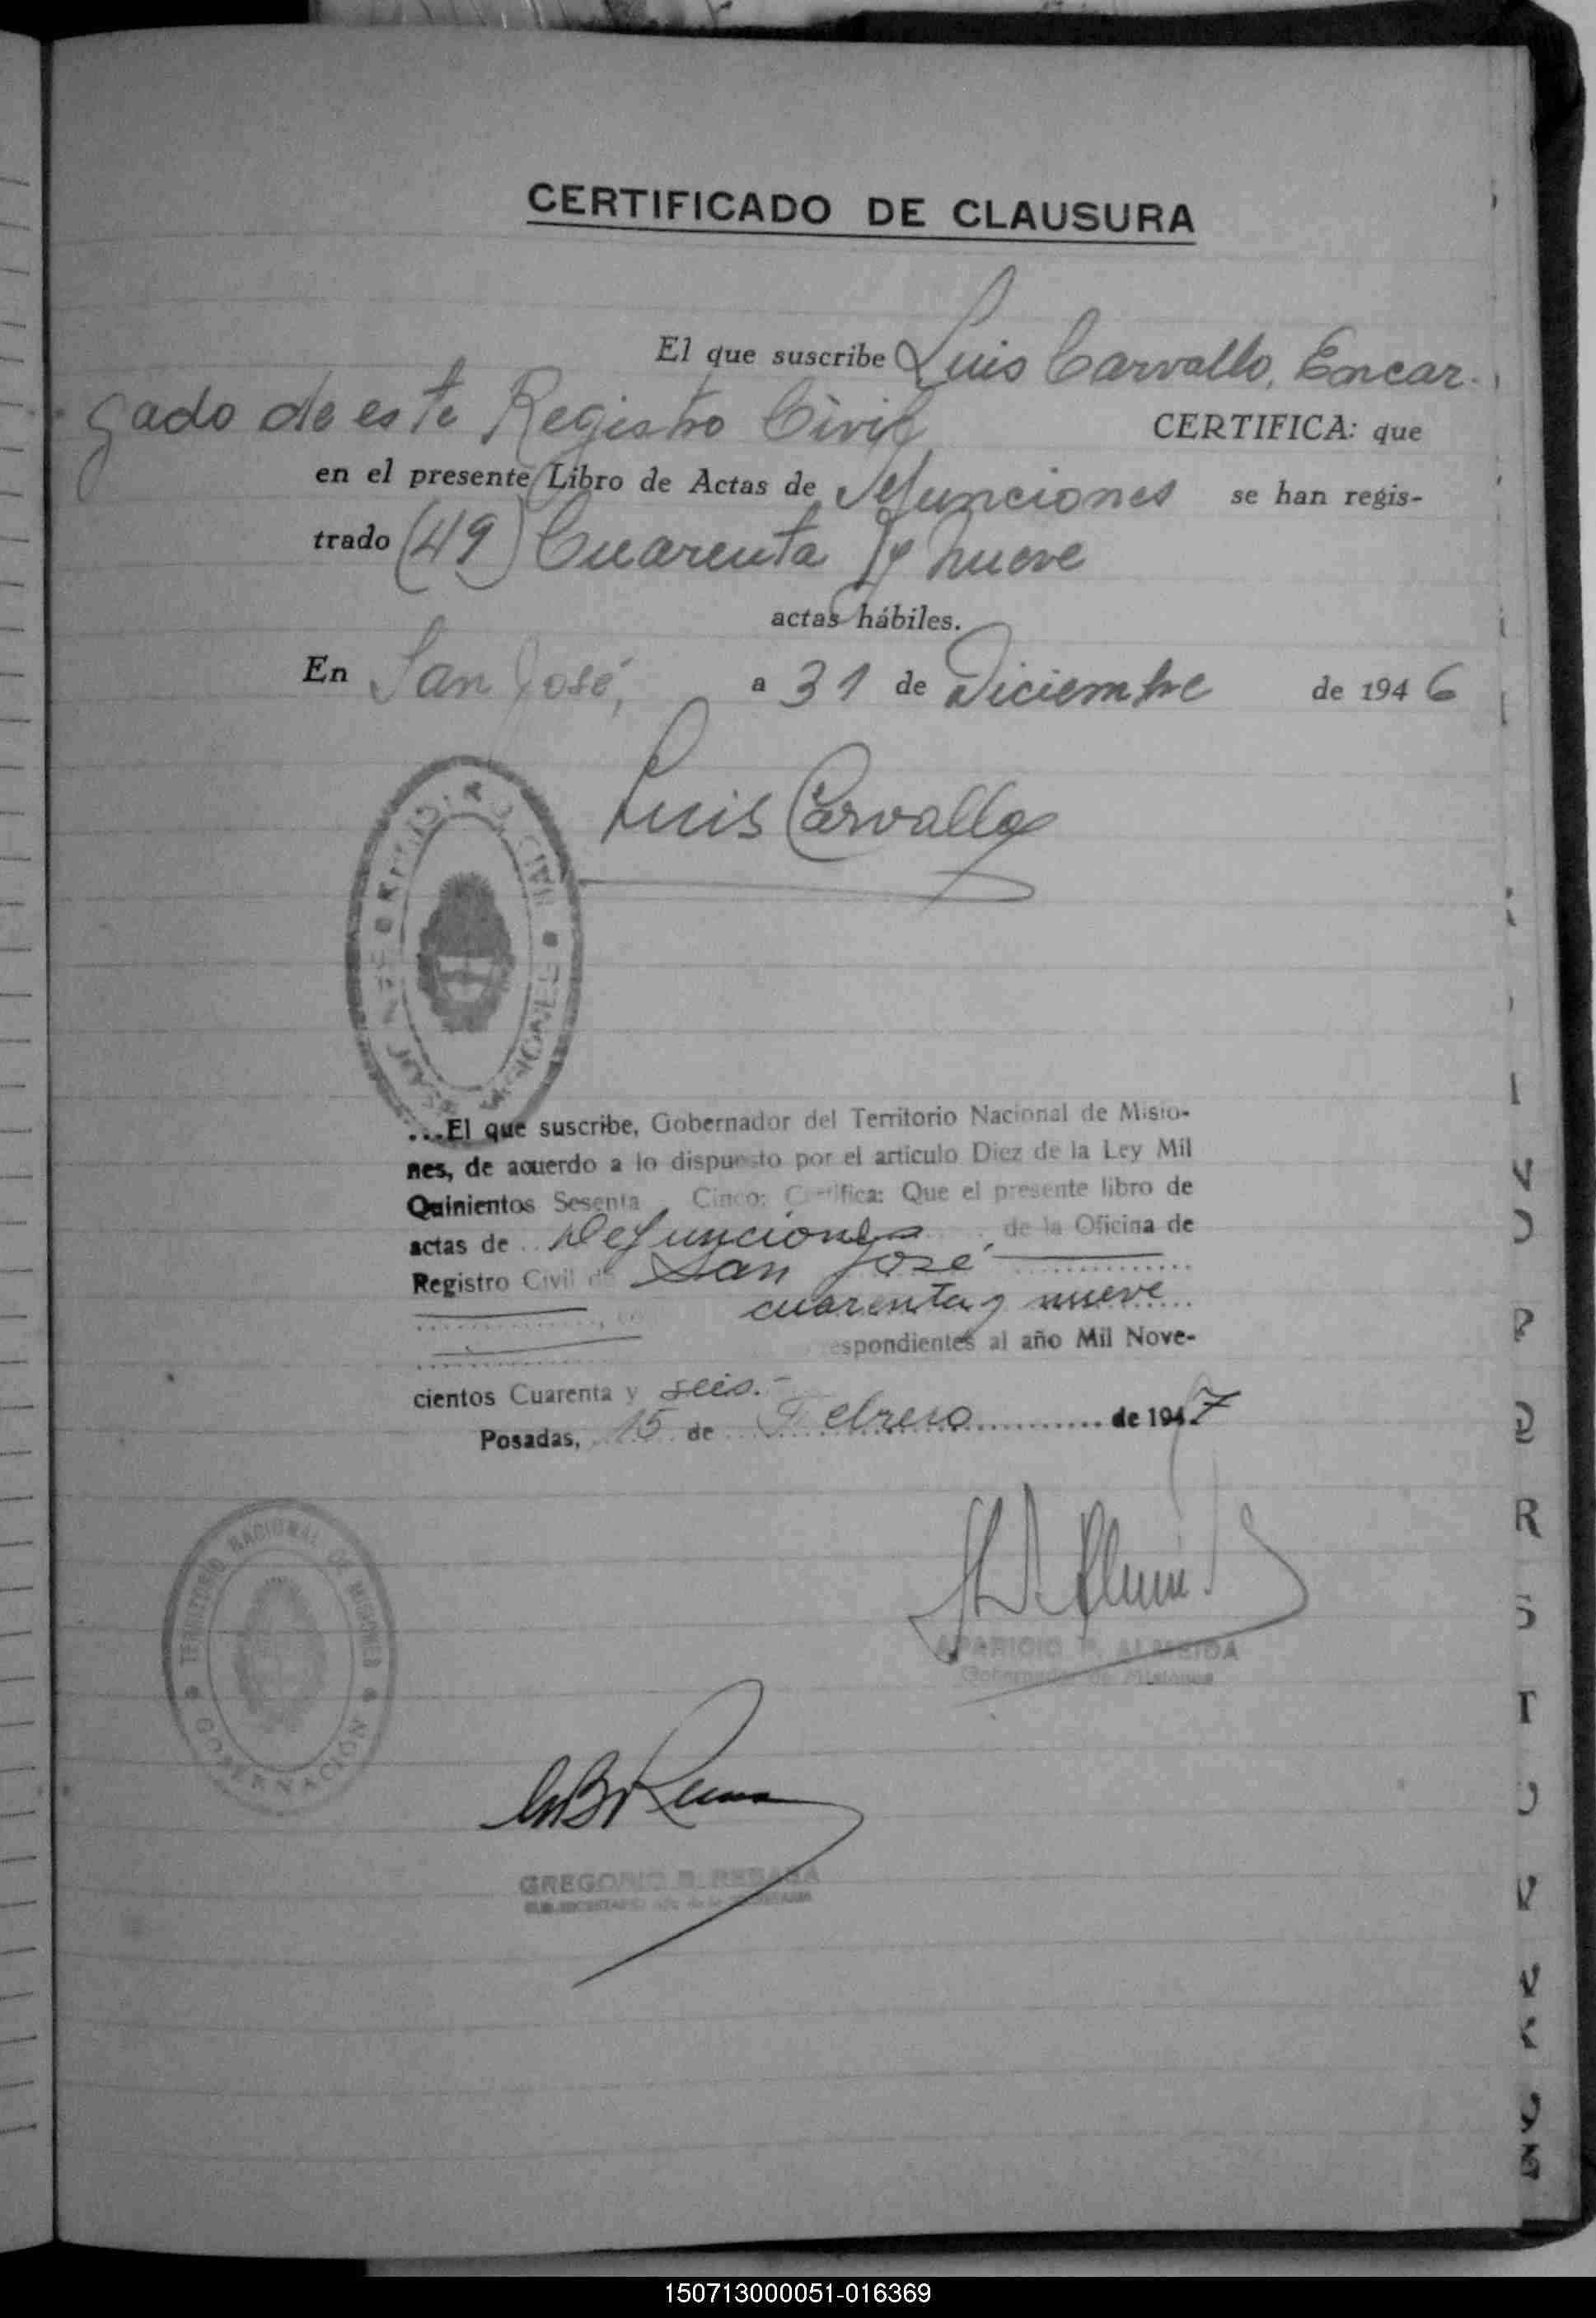 CERTIFICADO DE CLAUSURA
El que suscribe Luis Carvallo, Encar-
gado de este Registro Civil, CERTIFICA: que
en el presente Libro de Actas de Defunciones se han regis-
trado (49) Cuarenta y nueve
actas hábiles.
En San José, a 31 de Diciembre de 1946
Luis Carvallo
REGISTRO CIVIL
SAN JOSE MISIONES
...El que suscribe, Gobernador del Territorio Nacional de Misio-
nes, de acuerdo a lo dispuesto por el articulo Diez de la Ley Mil
Quinientos Sesenta Cinco: Certifica: Que el presente libro de
actas de Defunciones de la Oficina de
Registro Civil de San José
cuarenta y nueve
espondientes al año Mil Nove-
cientos Cuarenta y seis.-
Posadas, 15 de Febrero de 1947
TERRITORIO NACIONAL DE MISIONES
GOBERNACIÓN
APARICIO P. ALMEIDA
Gobernador de Misiones
GREGORIO B.
I
N
O
P
Q
R
S
T
U
V
150713000051-016369